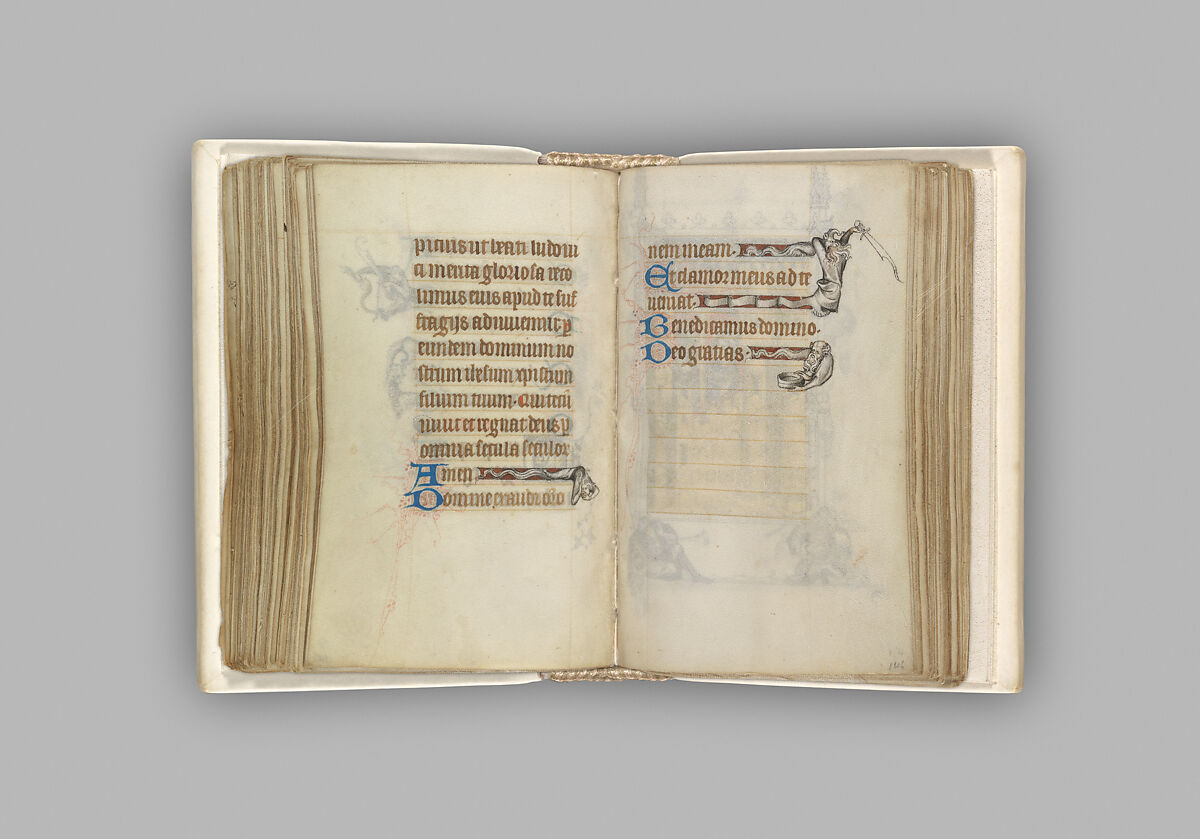 picius ut beati ludoui
ci merita gloriosa reco
limus eius apud te suf
fragijs adiuuemur p
eundem dominum no
strum ihesum xpistum
filium tuum. Qui tecū
uiuit et regnat deus p
omnia secula seculor
Amen
Domine exaudi oro
nem meam.
Et clamor meus ad te
ueniat.
Benedicamus domino.
Deo gratias.